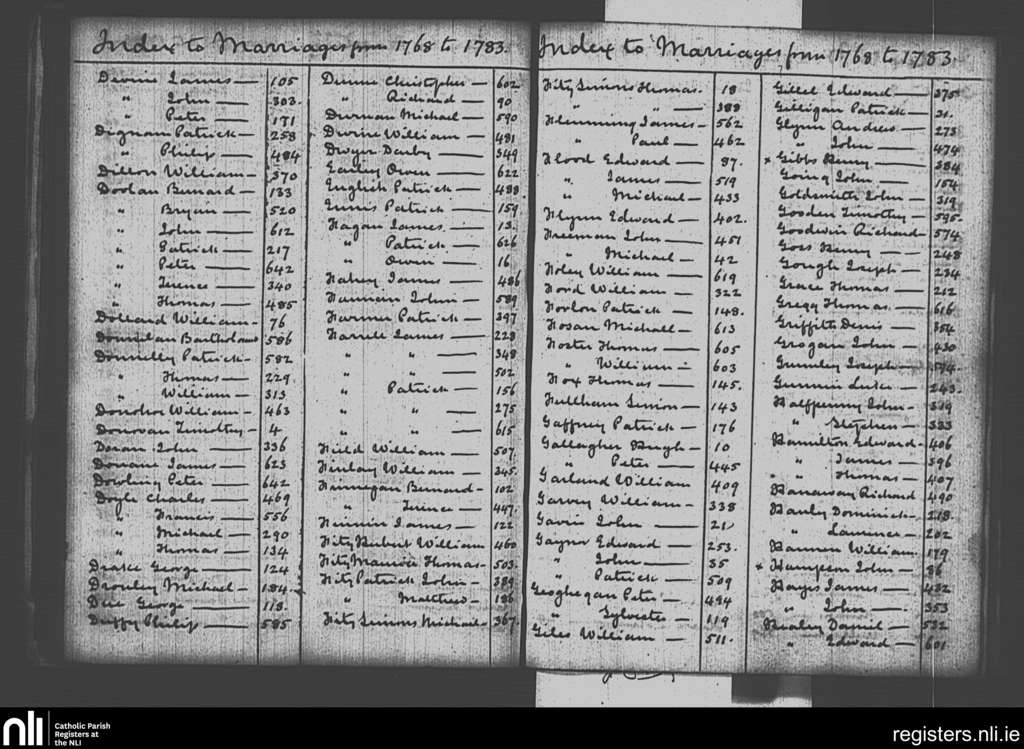 Index to Marriages from 1768 to 1783.
Devine James — 105
" John — 303.
" Peter — 171
Dignam Patrick — 258
" Philip — 484
Dillon William — 370
Doolan Bernard — 133
" Bryan — 520
" John — 612
" Patrick — 217
" Peter — 642
" Terence — 340
" Thomas — 485
Dolland William — 76
Donnelan Bartholomew 586
Donnelly Patrick — 582
" Thomas — 229
" William — 313
Donohoe William — 463
Donovan Timothy — 4
Doran John — 336
Dorrane James — 623
Dowling Peter — 642
Doyle Charles — 469
" Francis — 556
" Michael — 290
" Thomas — 134
Drake George — 124
Drowley Michael — 184
Due George — 118.
Duffy Philip — 585
Dunne Christopher — 602
" Richard — 90
Durnan Michael — 590
Dwire William — 481
Dwyer Darby — 349
Earley Owen — 622
English Patrick — 488
Ennis Patrick — 159
Fagan James — 13.
" Patrick — 626
" Owen — 16
Fahey James — 486
Fannin John — 589
Farmer Patrick — 397
Farrell James — 228
" " — 348
" " — 502
" Patrick — 156
" " — 275
" " — 615
Field William — 507
Finlay William — 345
Finnegan Bernard — 102
" Terence — 447
Finnin James — 122
FitzHubert William 460
FitzMaurice Thomas — 503
FitzPatrick John — 389
" Matthew — 186
FitzSimons Michael — 367
Index to Marriages from 1768 to 1783.
FitzSimons Thomas — 18
" " — 388
Flemming James — 562
" Paul — 462
Flood Edward — 87.
" James — 519
" Michael — 433
Flynn Edward — 402.
Freeman John — 451
" Michael — 42
Foley William — 619
Ford William — 322
Forlon Patrick — 148.
Fosan Michael — 613
Foster Thomas — 605
" William — 603
Fox Thomas — 145.
Fullham Simon — 143
Gaffney Patrick — 176
Gallagher Hugh — 10
" Peter — 445
Garland William 409
Garvey William — 338
Gavin John — 21
Gaynor Edward — 253.
" John — 35
" Patrick — 509
Geoghegan Peter — 494
" Sylvester — 119
Giles William — 511.
Gillet Edward — 375
Gilligan Patrick — 31.
Glynn Andrew — 273
" John — 474
× Gibbs Henry — 384
Going John — 154
Goldsmith John — 319
Gooden Timothy — 595
Goodwin Richard 574
Goss Henry — 248
Gough Joseph — 234
Grace Thomas — 212
Gregg Thomas — 616
Griffith Denis — 354
Grogan John — 430
Grumley Joseph — 594
Gunnin Luke — 243
Halfpenny John — 319
" Stephen — 333
Hamilton Edward — 406
" James — 396
" Thomas — 407
Hanaway Richard 490
Hanly Dominick — 218.
" Laurence — 202
Hannen William 179
× Hampson John — 86
Hayes James — 432
" John — 353
Healey Daniel — 532
" Edward — 601
nli
Catholic Parish
Registers at
the NLI
registers.nli.ie